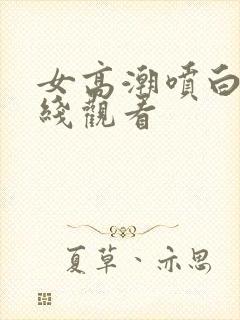 女高潮噴白
綫觀看
夏草、亦思